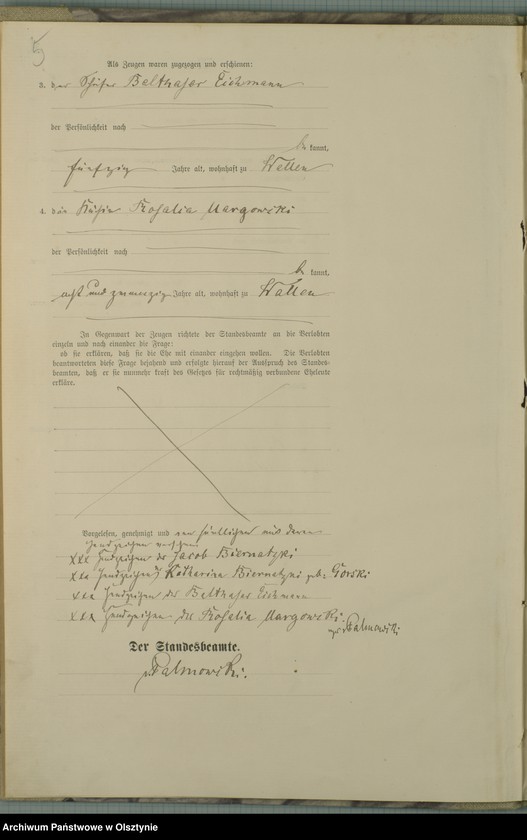 Als Zeugen waren zugezogen und erschienen:
3. der Schäfer Balthaser Eichmann
der Persönlichkeit nach
be kannt,
fünfzig Jahre alt, wohnhaft zu Watten
4. die Rosalia Margowski
der Persönlichkeit nach
be kannt,
acht und zwanzig Jahre alt, wohnhaft zu Watten
In Gegenwart der Zeugen richtete der Standesbeamte an die Verlobten
einzeln und nach einander die Frage:
ob sie erklären, daß sie die Ehe mit einander eingehen wollen. Die Verlobten
beantworteten diese Frage bejahend und erfolgte hierauf der Ausspruch des Standes-
beamten, daß er sie nunmehr kraft des Gesetzes für rechtmäßig verbundene Eheleute
erkläre.
Vorgelesen, genehmigt und von sämtlichen mit deren
Handzeichen versehen
XXX Handzeichen des Jacob Biernatzki
XXX Handzeichen d Katharina Biernatzki geb: Gorski
XXX Handzeichen des Balthaser Eichmann
XXX Handzeichen der Rosalia Margowski.
gez. Palmowski
Der Standesbeamte.
Palmowski.
Archiwum Państwowe w Olsztynie